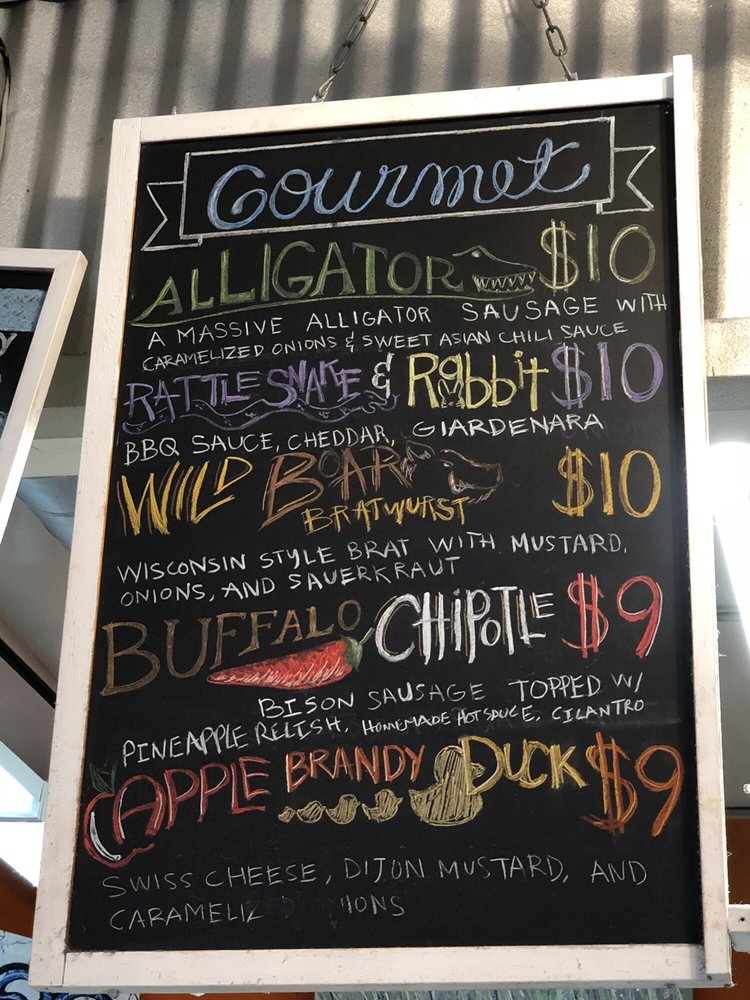 Gourmet
ALLIGATOR $10
A MASSIVE ALLIGATOR SAUSAGE WITH
CARAMELIZED ONIONS & SWEET ASIAN CHILI SAUCE
RATTLESNAKE & Rabbit $10
BBQ SAUCE, CHEDDAR, GIARDENARA
WILD BOAR $10
BRATWURST
WISCONSIN STYLE BRAT WITH MUSTARD,
ONIONS, AND SAUERKRAUT
BUFFALO CHIPOTLE $9
BISON SAUSAGE TOPPED W/
PINEAPPLE RELISH, HOMEMADE HOT SAUCE, CILANTRO
APPLE BRANDY DUCK $9
SWISS CHEESE, DIJON MUSTARD, AND
CARAMELIZED ONIONS